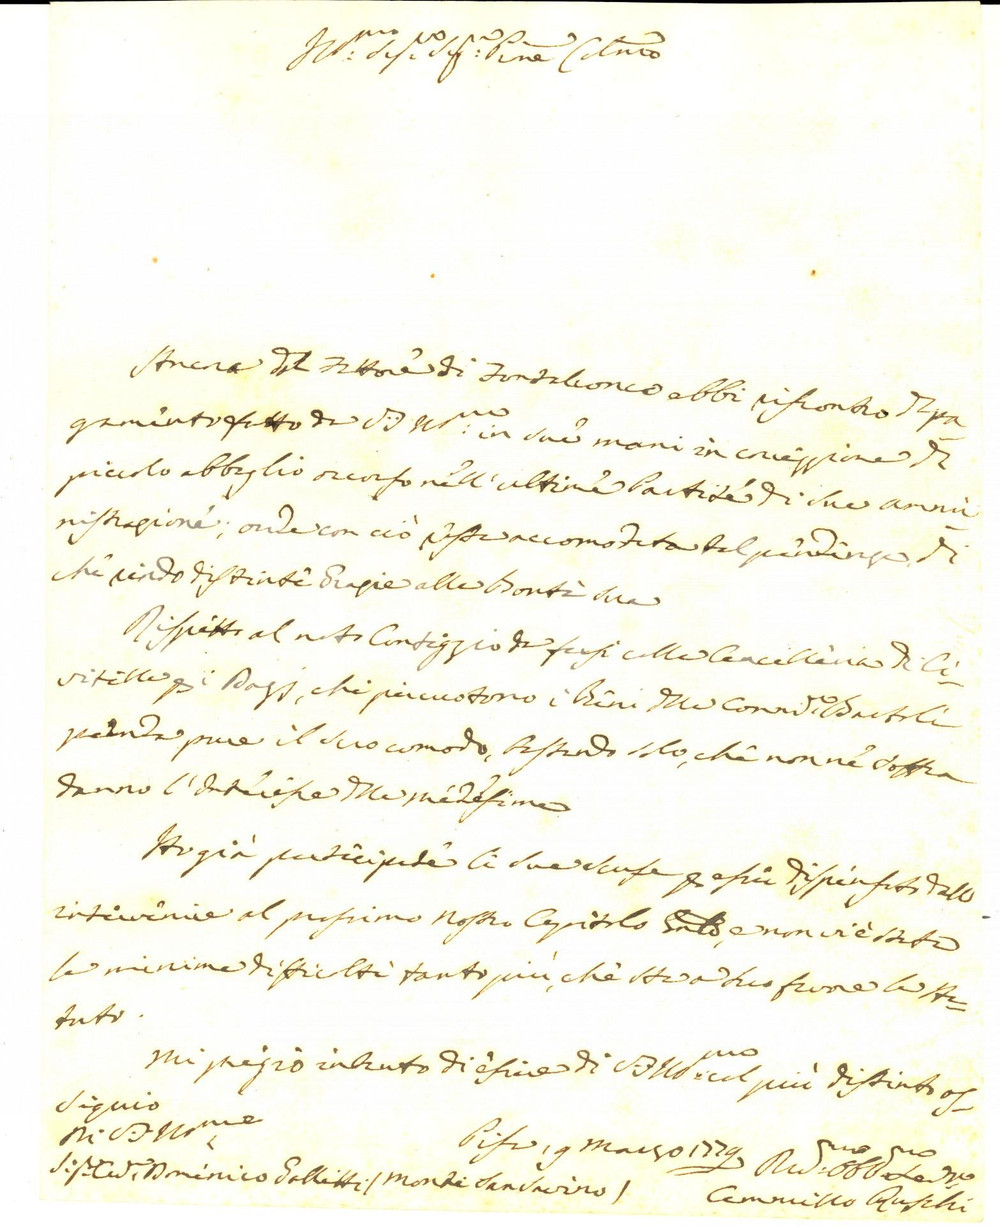 Ill:mo Sig:re Sig:re P:rone Col:mo
Ancora dal Fattore di Fontelunco ebbi riscontro del pa-
gamento fatto da V.S. Ill:ma in sue mani in correzzione di
piccolo abbaglio occorso nell'ultime Partite di sua ammi-
nistrazione; onde con ciò resta accomodata tal pendenza, di
che rendo distinte Grazie alla Bontà sua
Rispetto al noto Conteggio da farsi colla Cancelleria di Ci-
vitella per i Dazj, che percuotono i Beni della Comm:da Bartoli
prenda pure il suo comodo, bastando solo, che non ne soffra
danno l'Interesse della medesima
Ho già participate le sue scuse per esser dispensato dallo
intervenire al prossimo nostro Capitolo Gnle, e non vi è stata
la minima difficoltà tanto più, che sta a suo favore lo Sta-
tuto.
Mi pregio intanto di essere di V.S. Ill:ma col più distinto os-
sequio
Di V.S. Ill:ma
Pisa, 9 Marzo 1779
Sig: Cav: Domenico Galletti / Monte San Savino /
Dev:mo Obb:mo Ser:re
Cammillo Ruschi